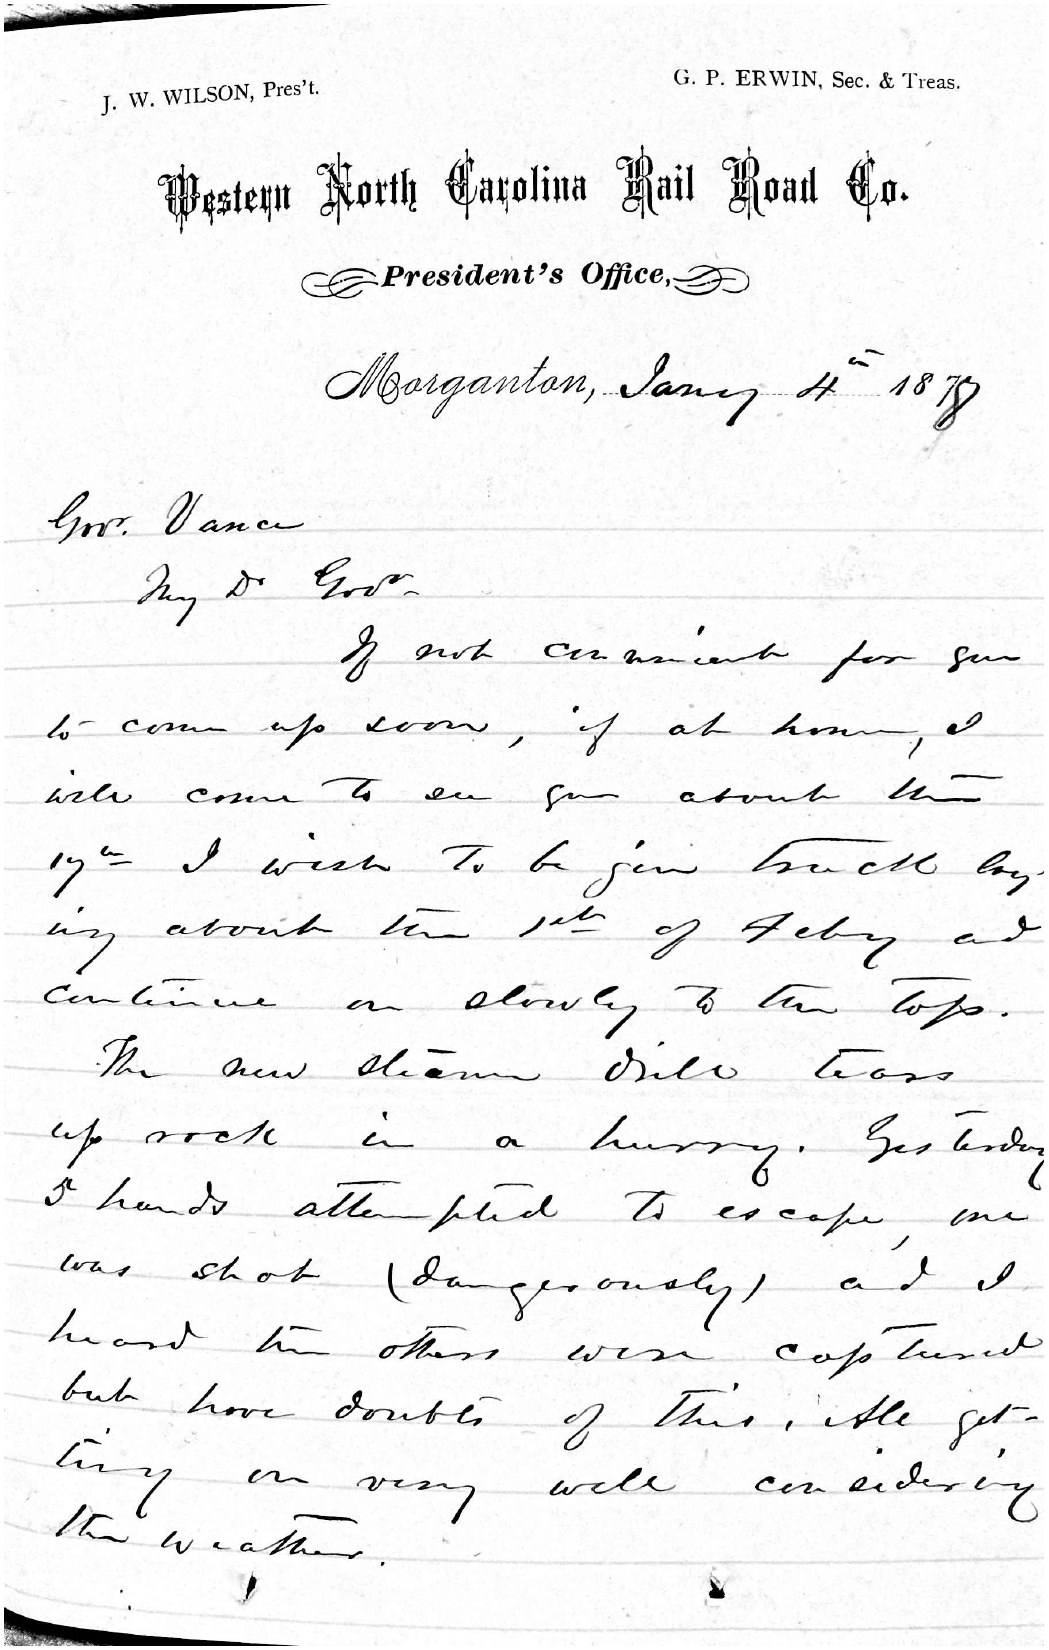 J. W. WILSON, Pres't.
G. P. ERWIN, Sec. & Treas.
Western North Carolina Rail Road Co.
President's Office,
Morganton, Jany 4th 1878
Govr. Vance
My Dr Govr-
If not convenient for you
to come up soon, if at home, I
will come to see you about the
17th I wish to begin track lay-
ing about the 1st of Feby and
continue on slowly to the top.
The new steam drill tears
up rock in a hurry. Yesterday
5 hands attempted to escape, one
was shot (dangerously) and I
heard the others were captured
but have doubts of this. All get-
ting on very well considering
the weather.